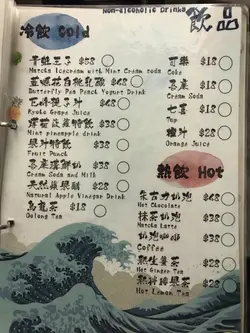 Non-alcoholic Drinks
飲品
冷飲 Cold
$58
Matcha Icecream with Mint Cream soda
$48
Butterfly Pea Punch Yogurt Drink
$38
Kyoho Grape Juice
$38
Mint pineapple drink
果汁特飲 $38
Fruit Punch
$38
Cream Soda and Milk
天然蘋果醋 $28
Natural Apple Vinegar Drink
烏龍茶 $28
Oolong Tea
可樂 $18
Coke
忌廉 $18
Cream Soda
七喜 $18
7up
橙汁 $28
Orange Juice
熱飲 Hot
朱古力奶泡 $48
Hot Chocolate
抹茶奶泡 $38
Matcha Latte
奶泡咖啡 $38
Coffee
熱生薑茶 $28
Hot Ginger Tea
熱檸檬茶 $38
Hot Lemon Tea